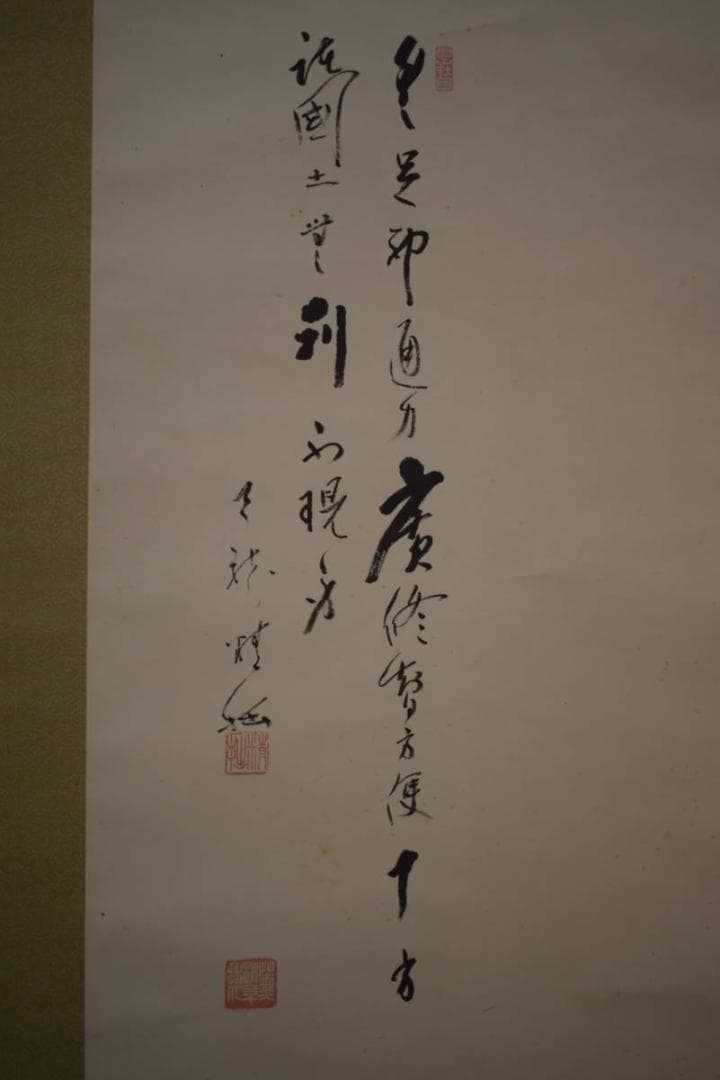 具足神通力廣修智方便十方
諸國土無刹不現身
天龍精拙